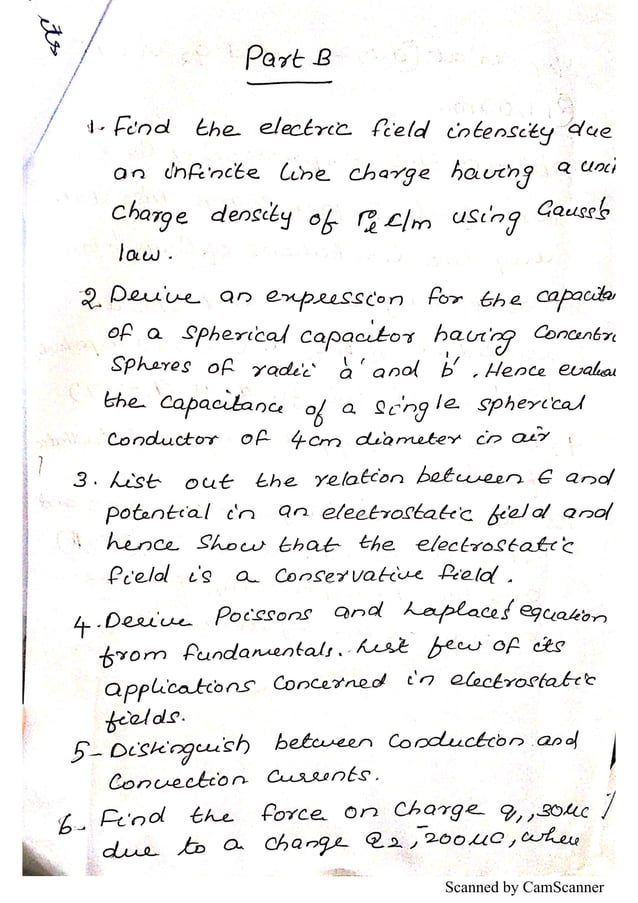 its
Part B
1. Find the electric field intensity due
an infinite line charge having a uni
charge density of ρe c/m using Gauss's
law.
2. Derive an expression for the capacita
of a spherical capacitor having concentri
spheres of radii 'a' and 'b'. Hence evalua
the capacitance of a single spherical
conductor of 4cm diameter in air.
3. List out the relation between E and
potential in an electrostatic field and
hence show that the electrostatic
field is a conservative field.
4. Derive Poissons and Laplaces' equation
from fundamentals. List few of its
applications concerned in electrostatic
fields.
5- Distinguish between conduction and
convection currents.
6- Find the force on charge q1, 30μc
due to a change Q2, -200μc, when
Scanned by CamScanner